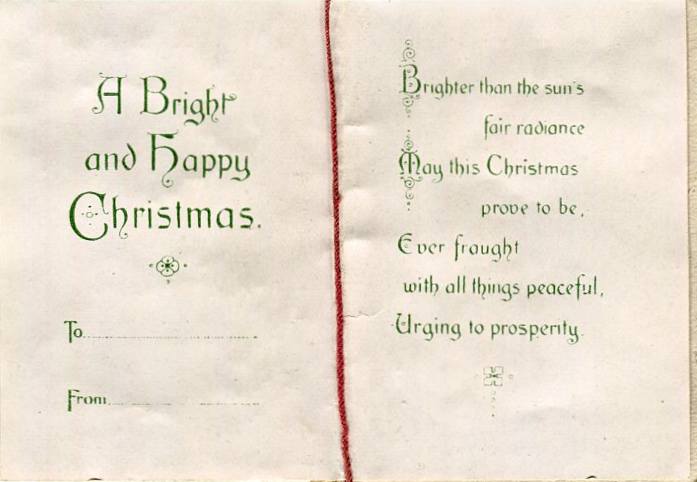 A Bright
and Happy
Christmas.
To
From
Brighter than the sun's
fair radiance
May this Christmas
prove to be,
Ever fraught
with all things peaceful,
Urging to prosperity.